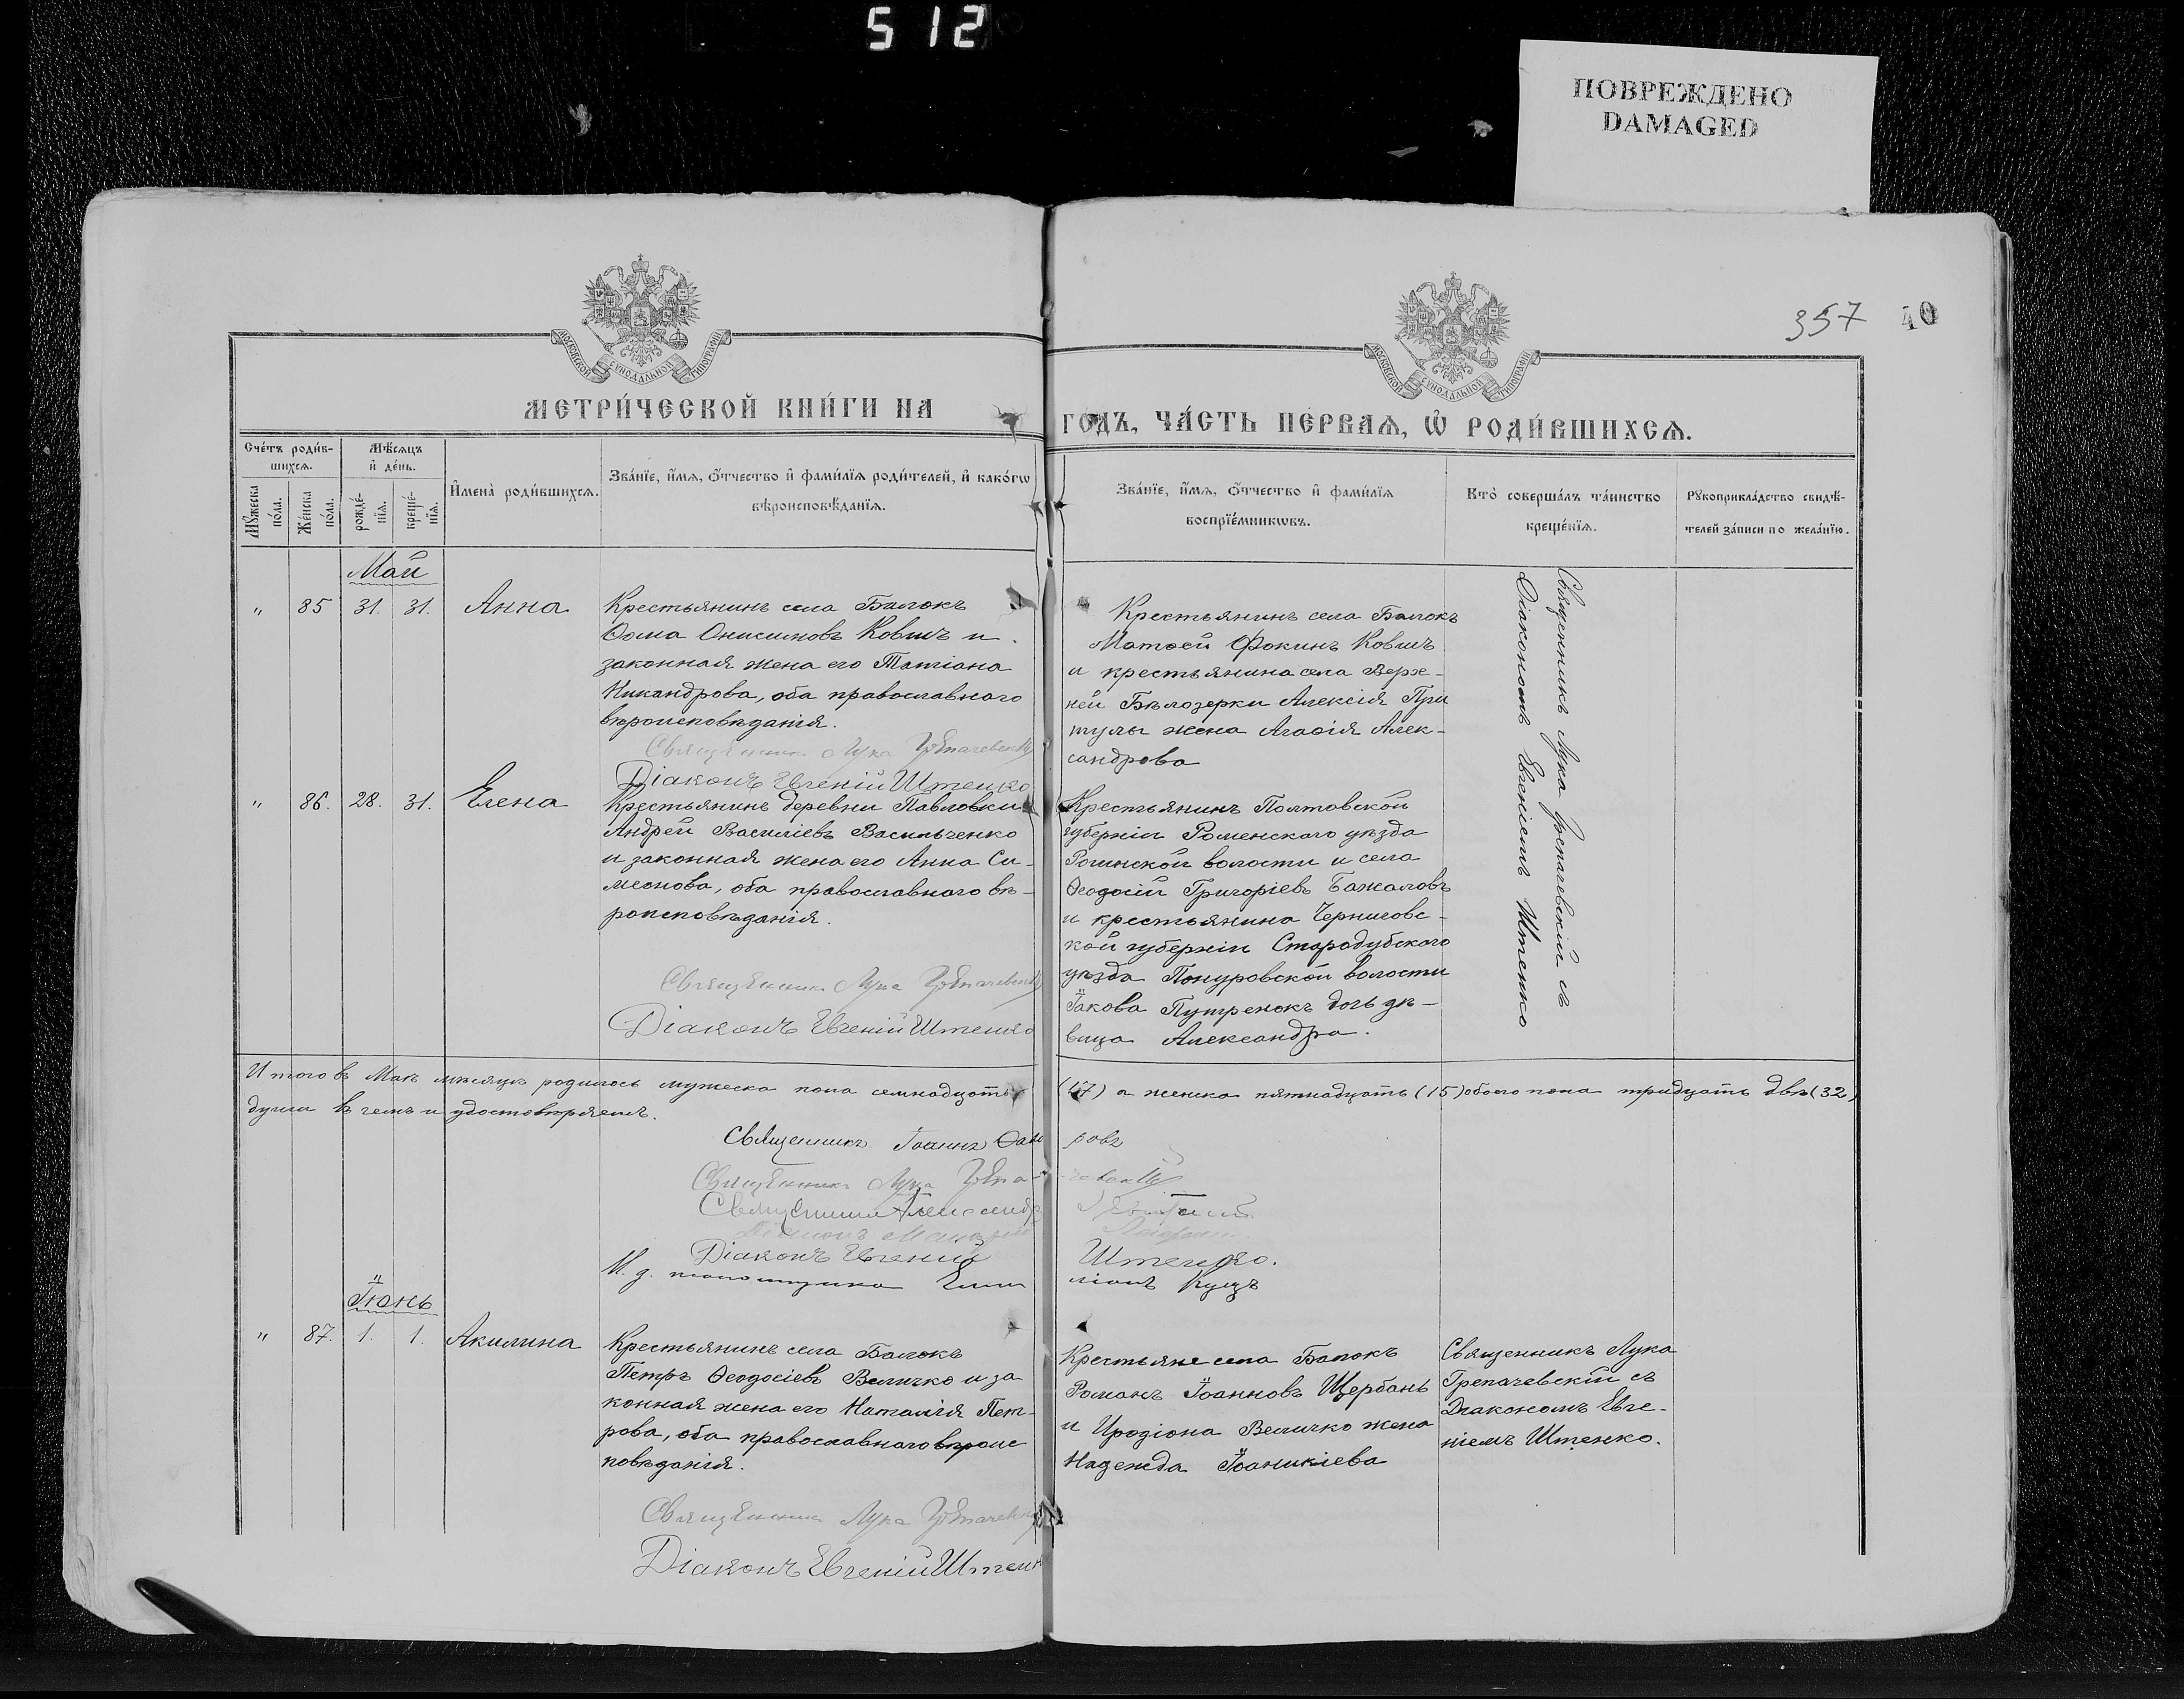 512
ПОВРЕЖДЕНО
DAMAGED
357 40
МОСКОВСКОЙ СѴНОДАЛЬНОЙ ТИПОГРАФІИ
МОСКОВСКОЙ СѴНОДАЛЬНОЙ ТИПОГРАФІИ
МЕТРИ́ЧЕСКОЙ КНИ́ГИ НА
ГОДЪ, ЧА́СТЬ ПЕ́РВАѦ, Ѡ҆ РОДИ́ВШИХСѦ.
Сче́тъ роди́в-
шихсѧ.
Мꙋ́жеска
по́ла.
Же́нска
по́ла.
Мѣ́сѧцъ
и҆ де́нь.
рожде́-
нїѧ.
креще́-
нїѧ.
И҆мена̀ роди́вшихсѧ.
Зва́нїе, и҆́мѧ, о҆́тчество и҆ фами́лїѧ роди́телей, и҆ како́гѡ
вѣроисповѣ́данїѧ.
Зва́нїе, и҆́мѧ, о҆́тчество и҆ фами́лїѧ
воспрїе́мникѡвъ.
Кто̀ соверша́лъ та́инство
креще́нїѧ.
Рꙋкоприкла́дство свидѣ́-
телей за́писи по жела́нїю.
Май
" 85 31. 31. Анна
Крестьянинъ села Балокъ
Ѳома Онисимовъ Ковшъ и
законная жена его Татіана
Никандрова, оба православнаго
вѣроисповѣданія.
Священникъ Лука Грепачевскій
Діаконъ Евгеній Штенко
Крестьянинъ села Балокъ
Матѳей Фокинъ Ковшъ
и крестьянина села Верх-
ней Бѣлозерки Алексія При
тулы жена Агаѳія Алек-
сандрова
Священникъ Лука Грепачевскій съ
Діакономъ Евгеніемъ Штенко
" 86. 28. 31. Елена
Крестьянинъ деревни Павловки
Андрей Василіевъ Васильченко
и законная жена его Анна Си-
меонова, оба православнаго вѣ-
роисповѣданія.
Священникъ Лука Грепачевскій
Діаконъ Евгеній Штенко
Крестьянинъ Полтавской
губерніи Роменскаго уѣзда
Рогинской волости и села
Ѳеодосій Григоріевъ Бажаловъ
и крестьянина Черниговс-
кой губерніи Стародубскаго
уѣзда Понуровской волости
Іакова Путренокъ дочь дѣ-
вица Александра.
Итого въ Маѣ мѣсяцѣ родилось мужеска пола семнадцать (17) а женска пятнадцать (15) обоего пола тридцать двѣ (32)
души въ чемъ и удостовѣряемъ.
Священникъ Іоаннъ
Священникъ Лука Грепачевскій
Священникъ Александръ
Діаконъ
Діаконъ Евгеній Штенко.
И. д. псаломщика Емиліанъ Куцъ
Іюнь
" 87. 1. 1. Акилина
Крестьянинъ села Балокъ
Петръ Ѳеодосіевъ Величко и за
конная жена его Наталія Пет-
рова, оба православнаго вѣроис
повѣданія.
Священникъ Лука Грепачевскій
Діаконъ Евгеній Штенко
Крестьяне села Балокъ
Романъ Іоанновъ Щербань
и Иродіона Величко жена
Надежда Іоаникіева
Священникъ Лука
Грепачевскій съ
Діакономъ Евге-
ніемъ Штенко.